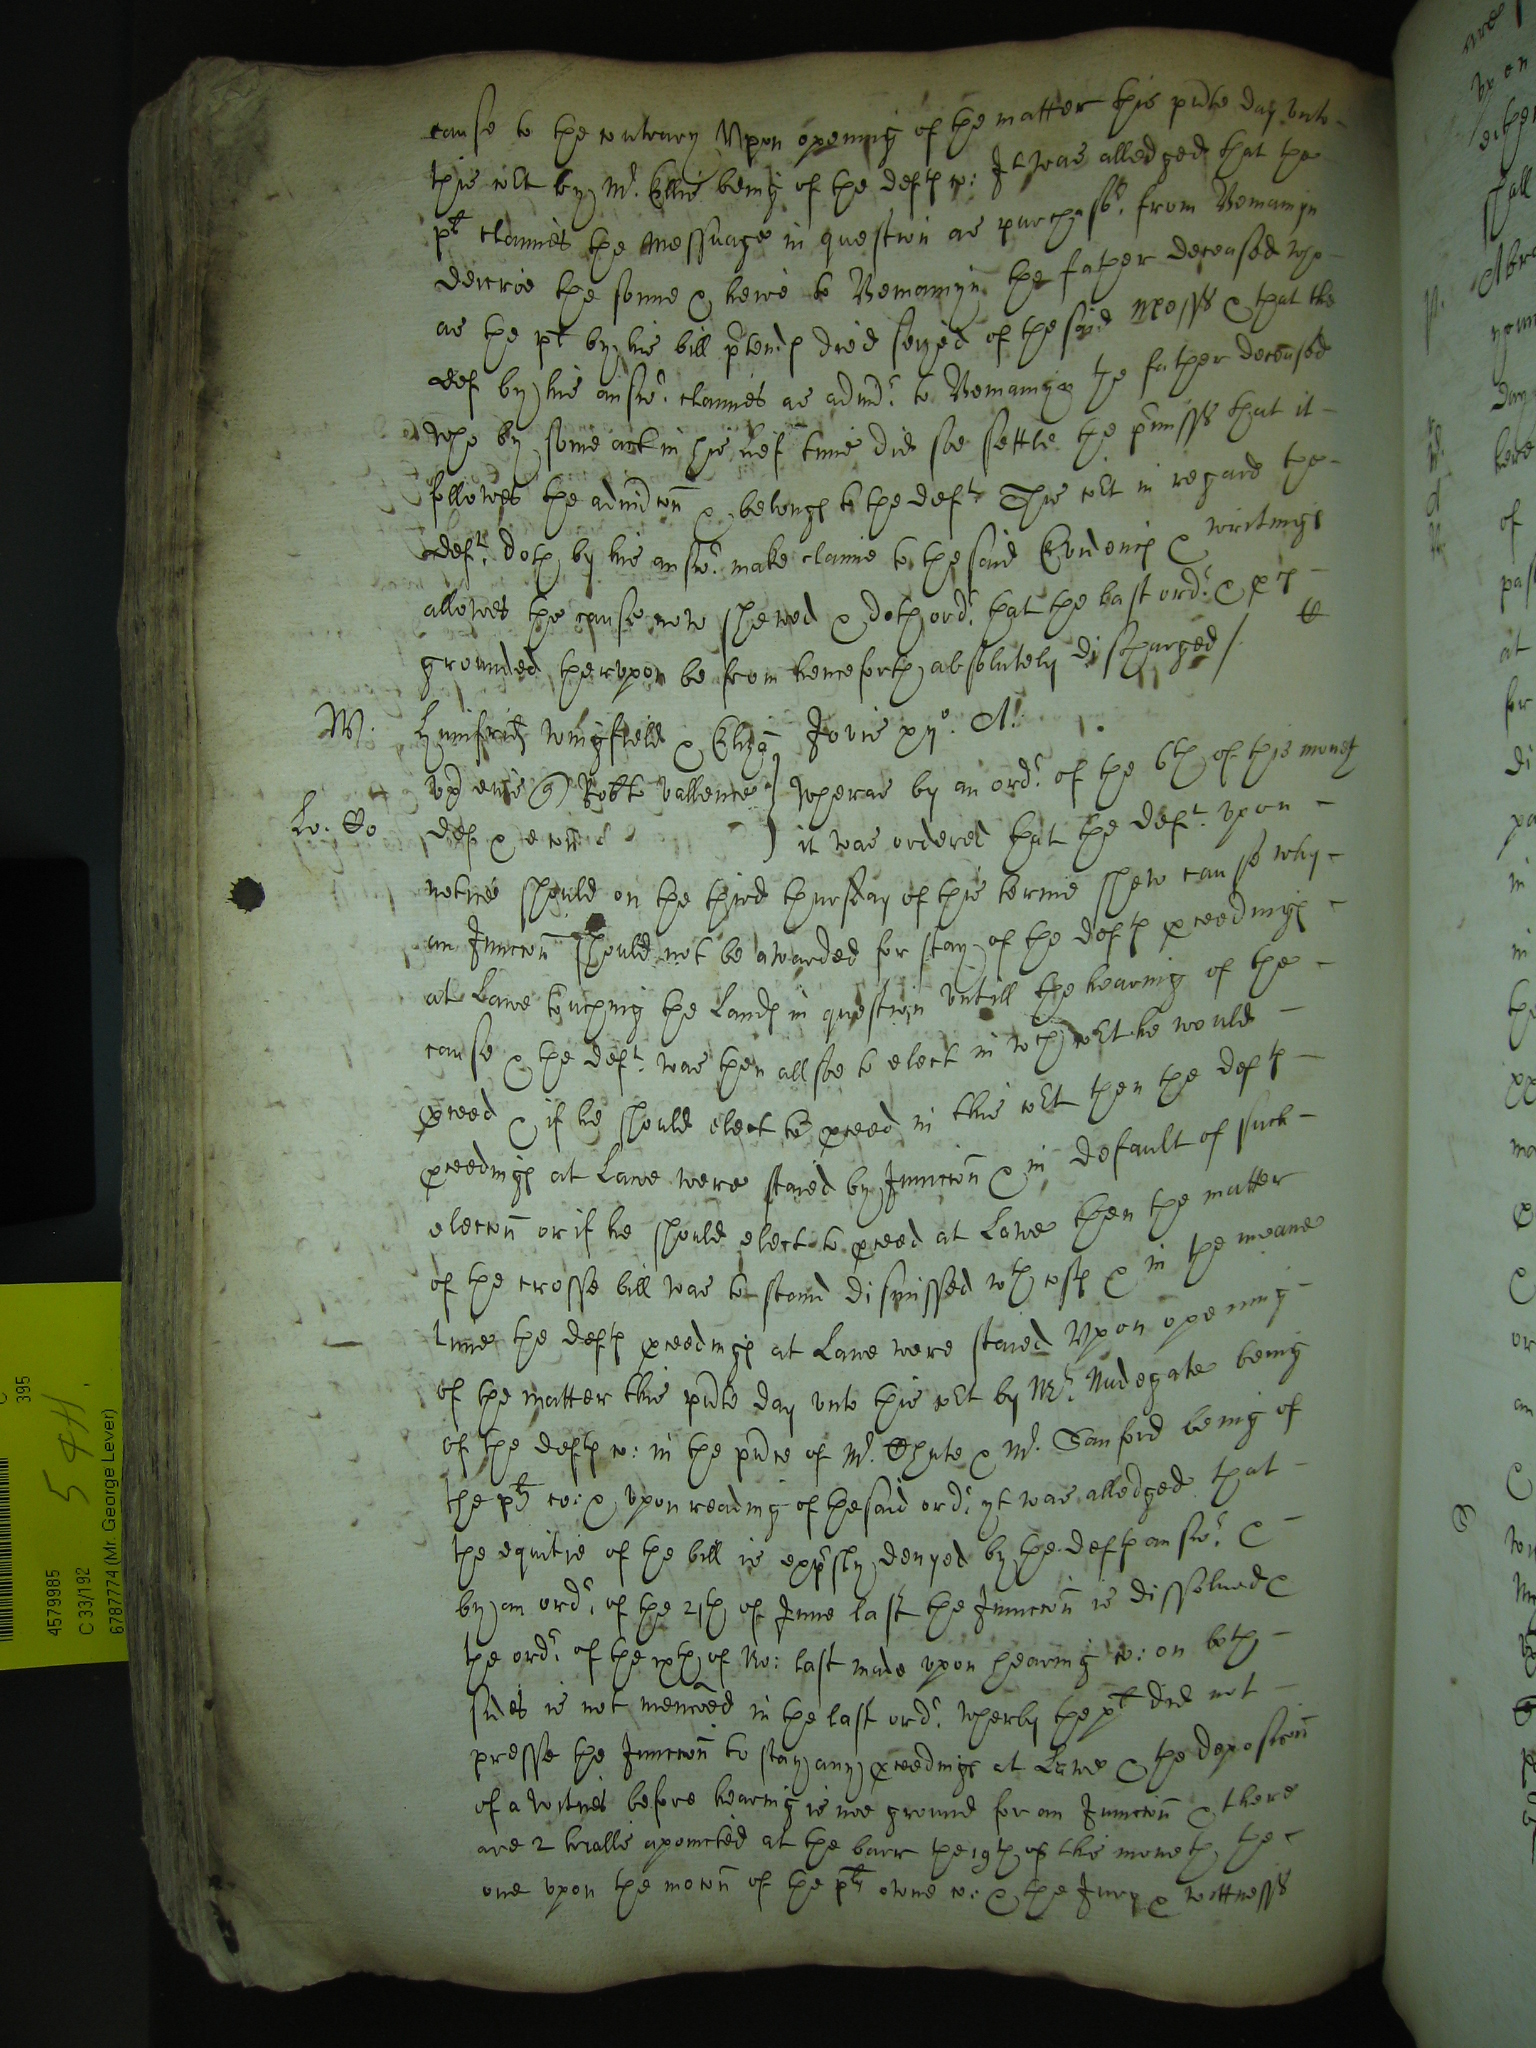 cause to the contrary Upon opening of the matter this pñte day unto
this cõrt by Mr. Ellis being of the deftes co: It was alledged that the
plt claimes the Messuage in question as purchasor. from Beniamyn
the sonne & heire to Beniamyn the father deceased who
as the plt by his bill p̃tendes died seized of the said messe & that the
def by his answr. claimes as admr. to Beniamyn the father deceased
who by some act in his lief time did soe settle the p̃misss that it
followes the admc̃on & belonges to the deft. This cõrt in regard the
deft. doth by his answr. make claime to the said Evidences & writinges
allowes the cause now shewed & doth ordr. that the last ordr. &
grounded therupon be from henceforth absolutely discharged /.
W. Wingfield & Jovis xijo. A:
Robto Vallence } Wheras by an ordr. of the 6th of this moneth
Lo. Co def & econ ) it was ordered that the deft. upon
notice should on the third thursday of this terme shew cause why
an Iniuncc̃on should not be awarded for stay of the deftes p̱ceedinges
at Lawe touching the Landes in question untill the hearing of the
cause & the deft. was then allsoe to elect in wch cõrt he would
p̱ceed & if he should elect to p̱ceed in this cõrt then the deftes
p̱ceedinges at Lawe were staied by Iniuncc̃on & in default of such
elecc̃on or if he should elect to p̱ceed at Lawe then the matter
of the crosse bill was to stand dismissed wth costes & in the meane
time the deftes p̱ceedinges at Lawe were staied Upon opening
of the matter this pñte day unto this cõrt by Mr. Nudegate being
of the deftes co: in the pñce of Mr. Chute & Mr. Sanford being of
the plts co: & upon reading of the said ordr. yt was alledged that
the equitie of the bill is exp̃sly denyed by the deftes answr. &
by an ordr. of the 21th of June last the Iniuncc̃on is dissolued &
the ordr. of the ixth of No: last made upon hearing co: on both
sides is not menc̃oed in the last ordr. wherby the plt did not
presse the Iniuncc̃on to stay any p̱ceedinges at Lawe & the deposic̃on
of a witnes before hearing is noe ground for an Iniuncc̃on & there
are 2 trialls apointed at the barr the 19th of this moneth the
one upon the moc̃on of the plts owne co: & the Jury & wittnesses
395
5 4H.
4579985
C 33/192
6787774 (Mr. George Lever)